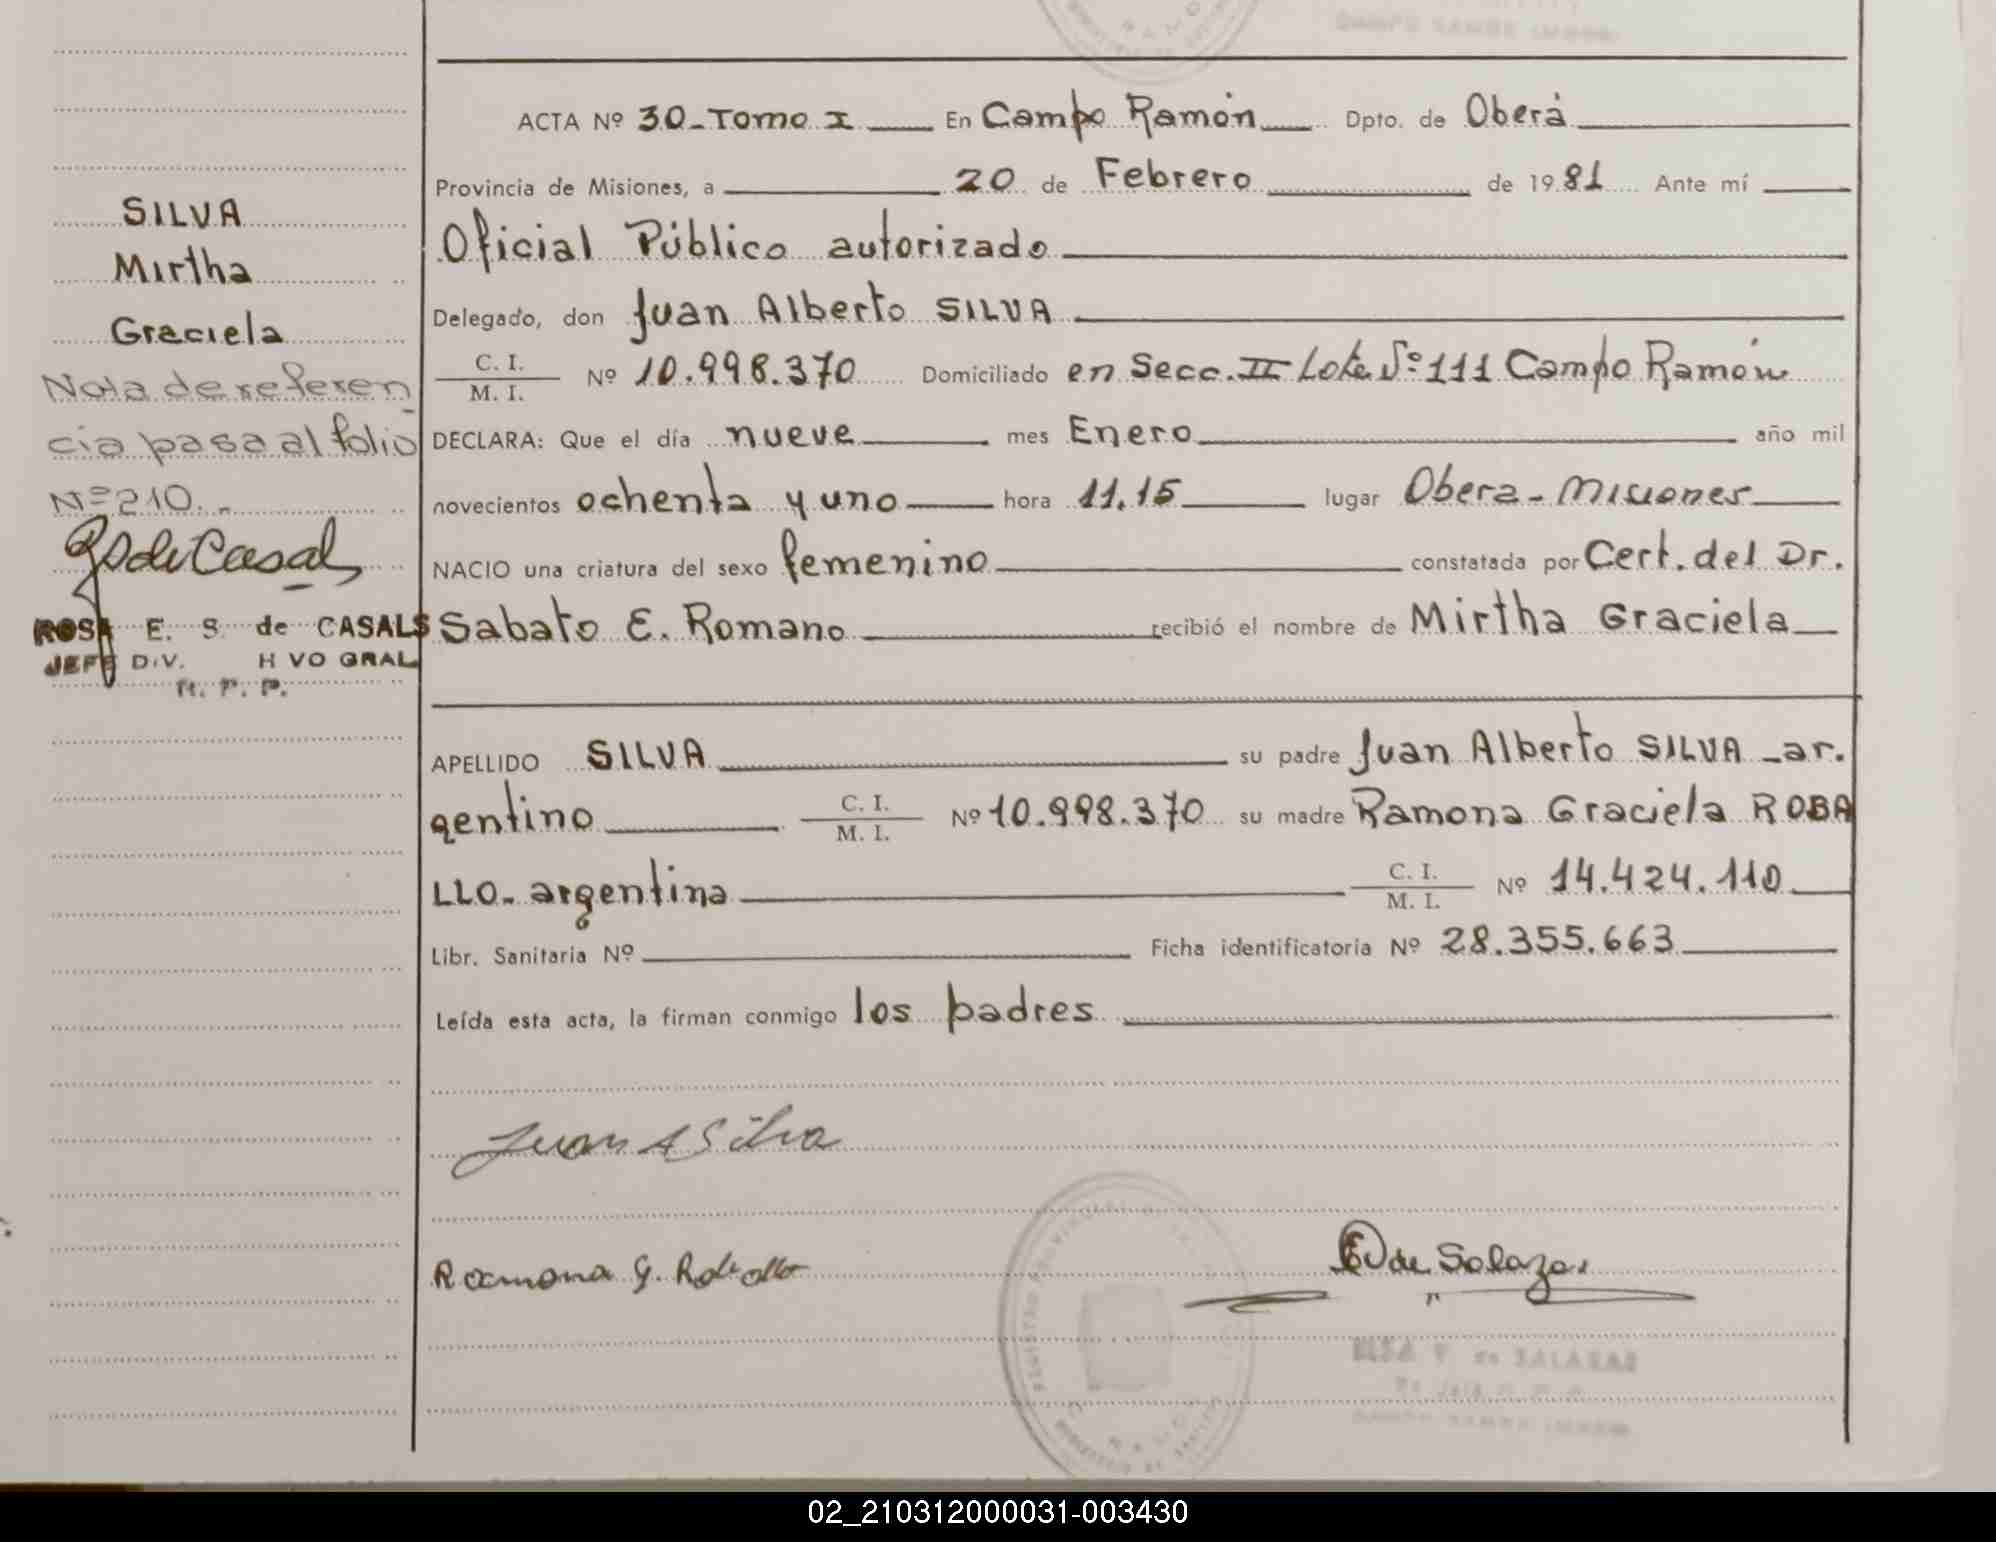 ACTA Nº 30_Tomo I En Campo Ramón Dpto. de Oberá
Provincia de Misiones, a 20 de Febrero de 1981 Ante mí
Oficial Público autorizado
Delegado, don Juan Alberto SILVA
C. I.
M. I.
Nº 10.998.370 Domiciliado en Secc. II Lote Nº 111 Campo Ramón
DECLARA: Que el día nueve mes Enero año mil
novecientos ochenta y uno hora 11.15 lugar Oberá - Misiones
NACIO una criatura del sexo femenino constatada por Cert. del Dr.
Sabato E. Romano recibió el nombre de Mirtha Graciela
APELLIDO SILVA su padre Juan Alberto SILVA _ ar.
gentino C. I.
M. I.
Nº 10.998.370 su madre Ramona Graciela ROBA
LLO- argentina C. I.
M. I.
Nº 14.424.110
Libr. Sanitaria Nº Ficha identificatoria Nº 28.355.663
Leída esta acta, la firman conmigo los padres
Juan A Silva
Ramona G. Roballo
de Salazar
ELSA V de SALAZAR
SILVA
Mirtha
Graciela
Nota de referen
cia pasa al folio
Nº 210.-
de Casals
ROSA E. S. de CASALS
JEFE DIV. GRAL
R. P. P.
02_210312000031-003430